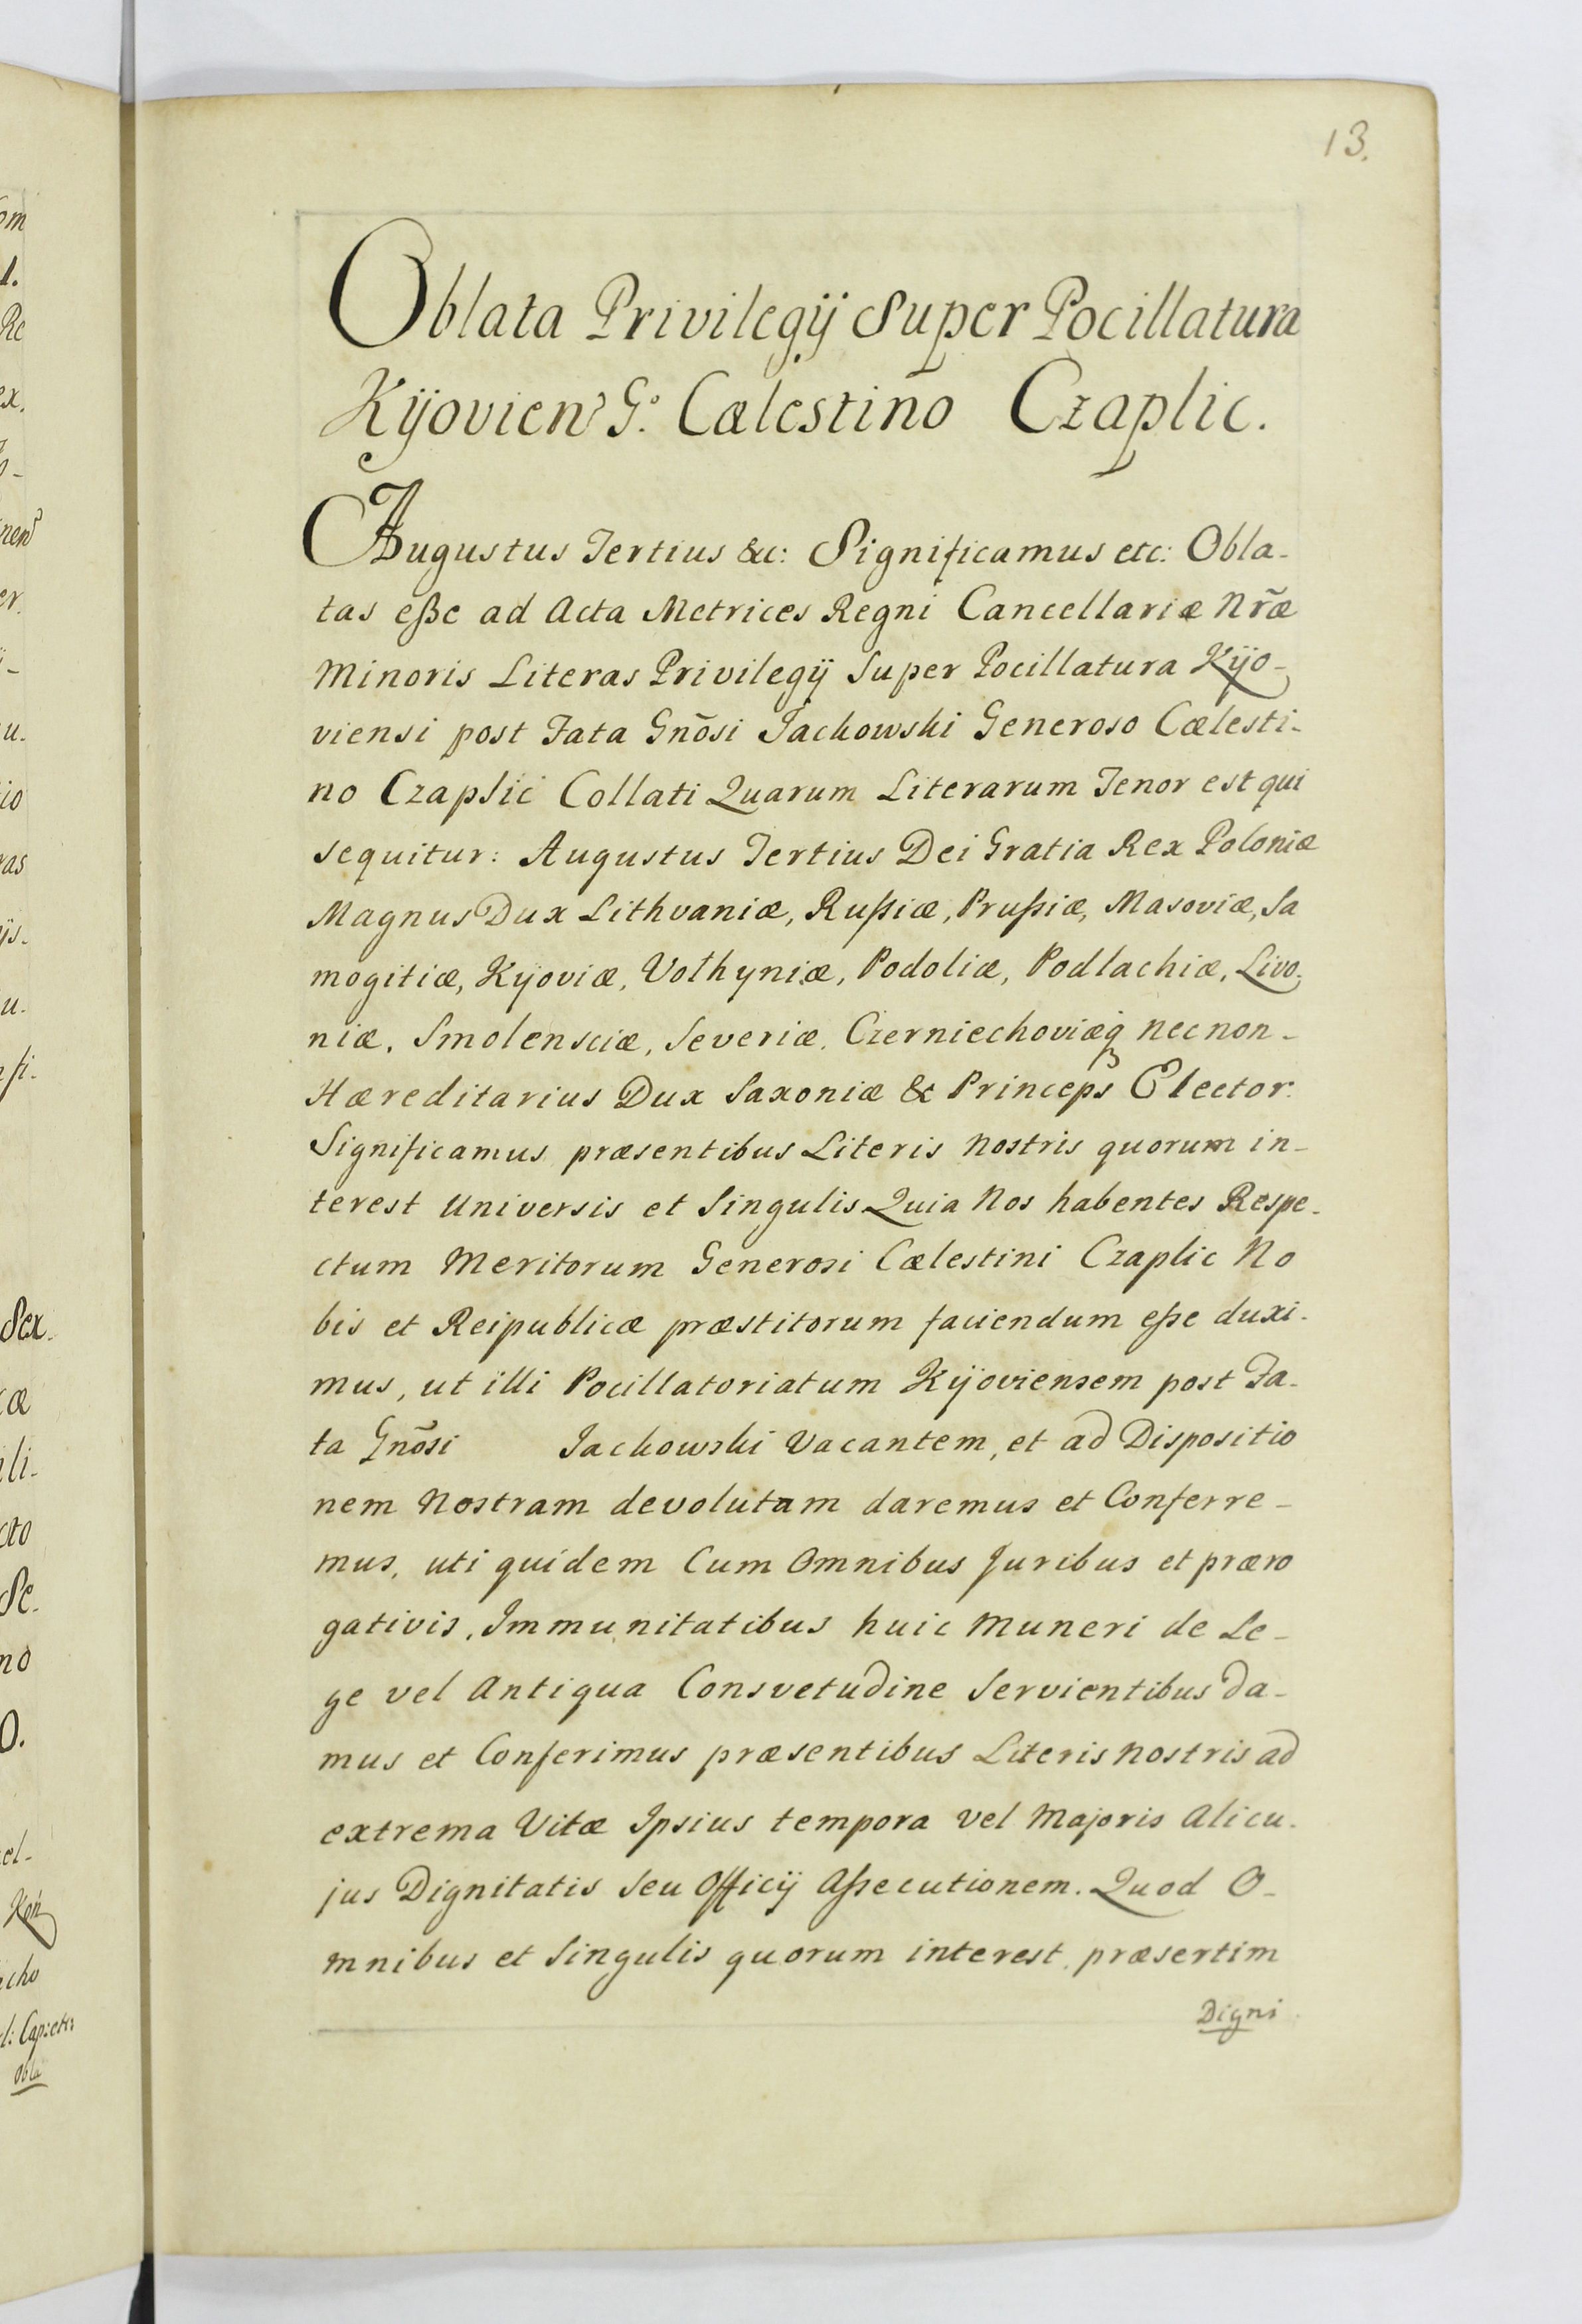 13.
Oblata Privilegÿ Super Pocillatura
Kÿovien G.o Cælestino Czaplic.
Augustus Tertius &c: Significamus etc: Obla-
tas eße ad Acta Metrices Regni Cancellariæ Nr̃æ
Minoris Literas Privilegÿ Super Pocillatura Kÿo-
viensi post Fata Gñosi Jachowski Generoso Cælesti-
no Czaplic Collati Quarum Literarum Tenor est qui
sequitur: Augustus Tertius Dei Gratia Rex Poloniæ
Magnus Dux Lithvaniæ, Rußiæ, Prußiæ, Masoviæ, Sa
mogitiæ, Kÿoviæ, Volhyniæ, Podoliæ, Podlachiæ, Livo-
niæ, Smolensciæ, Severiæ, Czerniechoviæq nec non-
Hæreditarius Dux Saxoniæ & Princeps Elector.
Significamus præsentibus Literis Nostris quorum in-
terest Universis et Singulis Quia Nos habentes Respe-
ctum Meritorum Generosi Cælestini Czaplic No
bis et Reipublicæ præstitorum faciendum eße duxi-
mus, ut illi Pocillatoriatum Kÿoviensem post Fa-
ta Gñosi Jachowski Vacantem, et ad Dispositio
nem Nostram devolutam daremus et Conferre-
mus, uti quidem Cum Omnibus Juribus et præro
gativis, Immunitatibus huic Muneri de Le-
ge vel Antiqua Consvetudine Servientibus Da-
mus et Conferimus præsentibus Literis Nostris ad
extrema Vitæ Ipsius tempora vel Majoris Alicu-
jus Dignitatis Seu Officÿ Aßecutionem. Quod O-
mnibus et Singulis quorum interest, præsertim
Digni